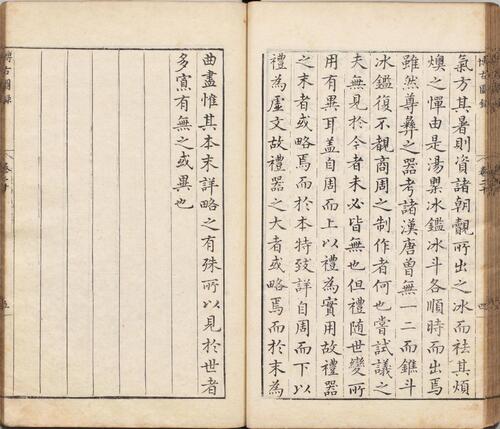 氣方其暑則資諸朝覿所出之冰而祛其煩
燠之憚由是湯䍜冰鑑冰斗各順時而出焉
雖然尊彝之器考諸漢唐曾無一二而鐎斗
冰鑑復不覩商周之制作者何也嘗試議之
夫無見於今者未必皆無也但禮随世變所
用有異耳盖自周而上以禮為實用故禮器
之末者或略焉而於本特致詳自周而下以
禮為虛文故禮器之大者或略焉而於末為
曲盡惟其本末詳略之有殊所以見於世者
多寡有無之或異也
博古圖錄
五
四